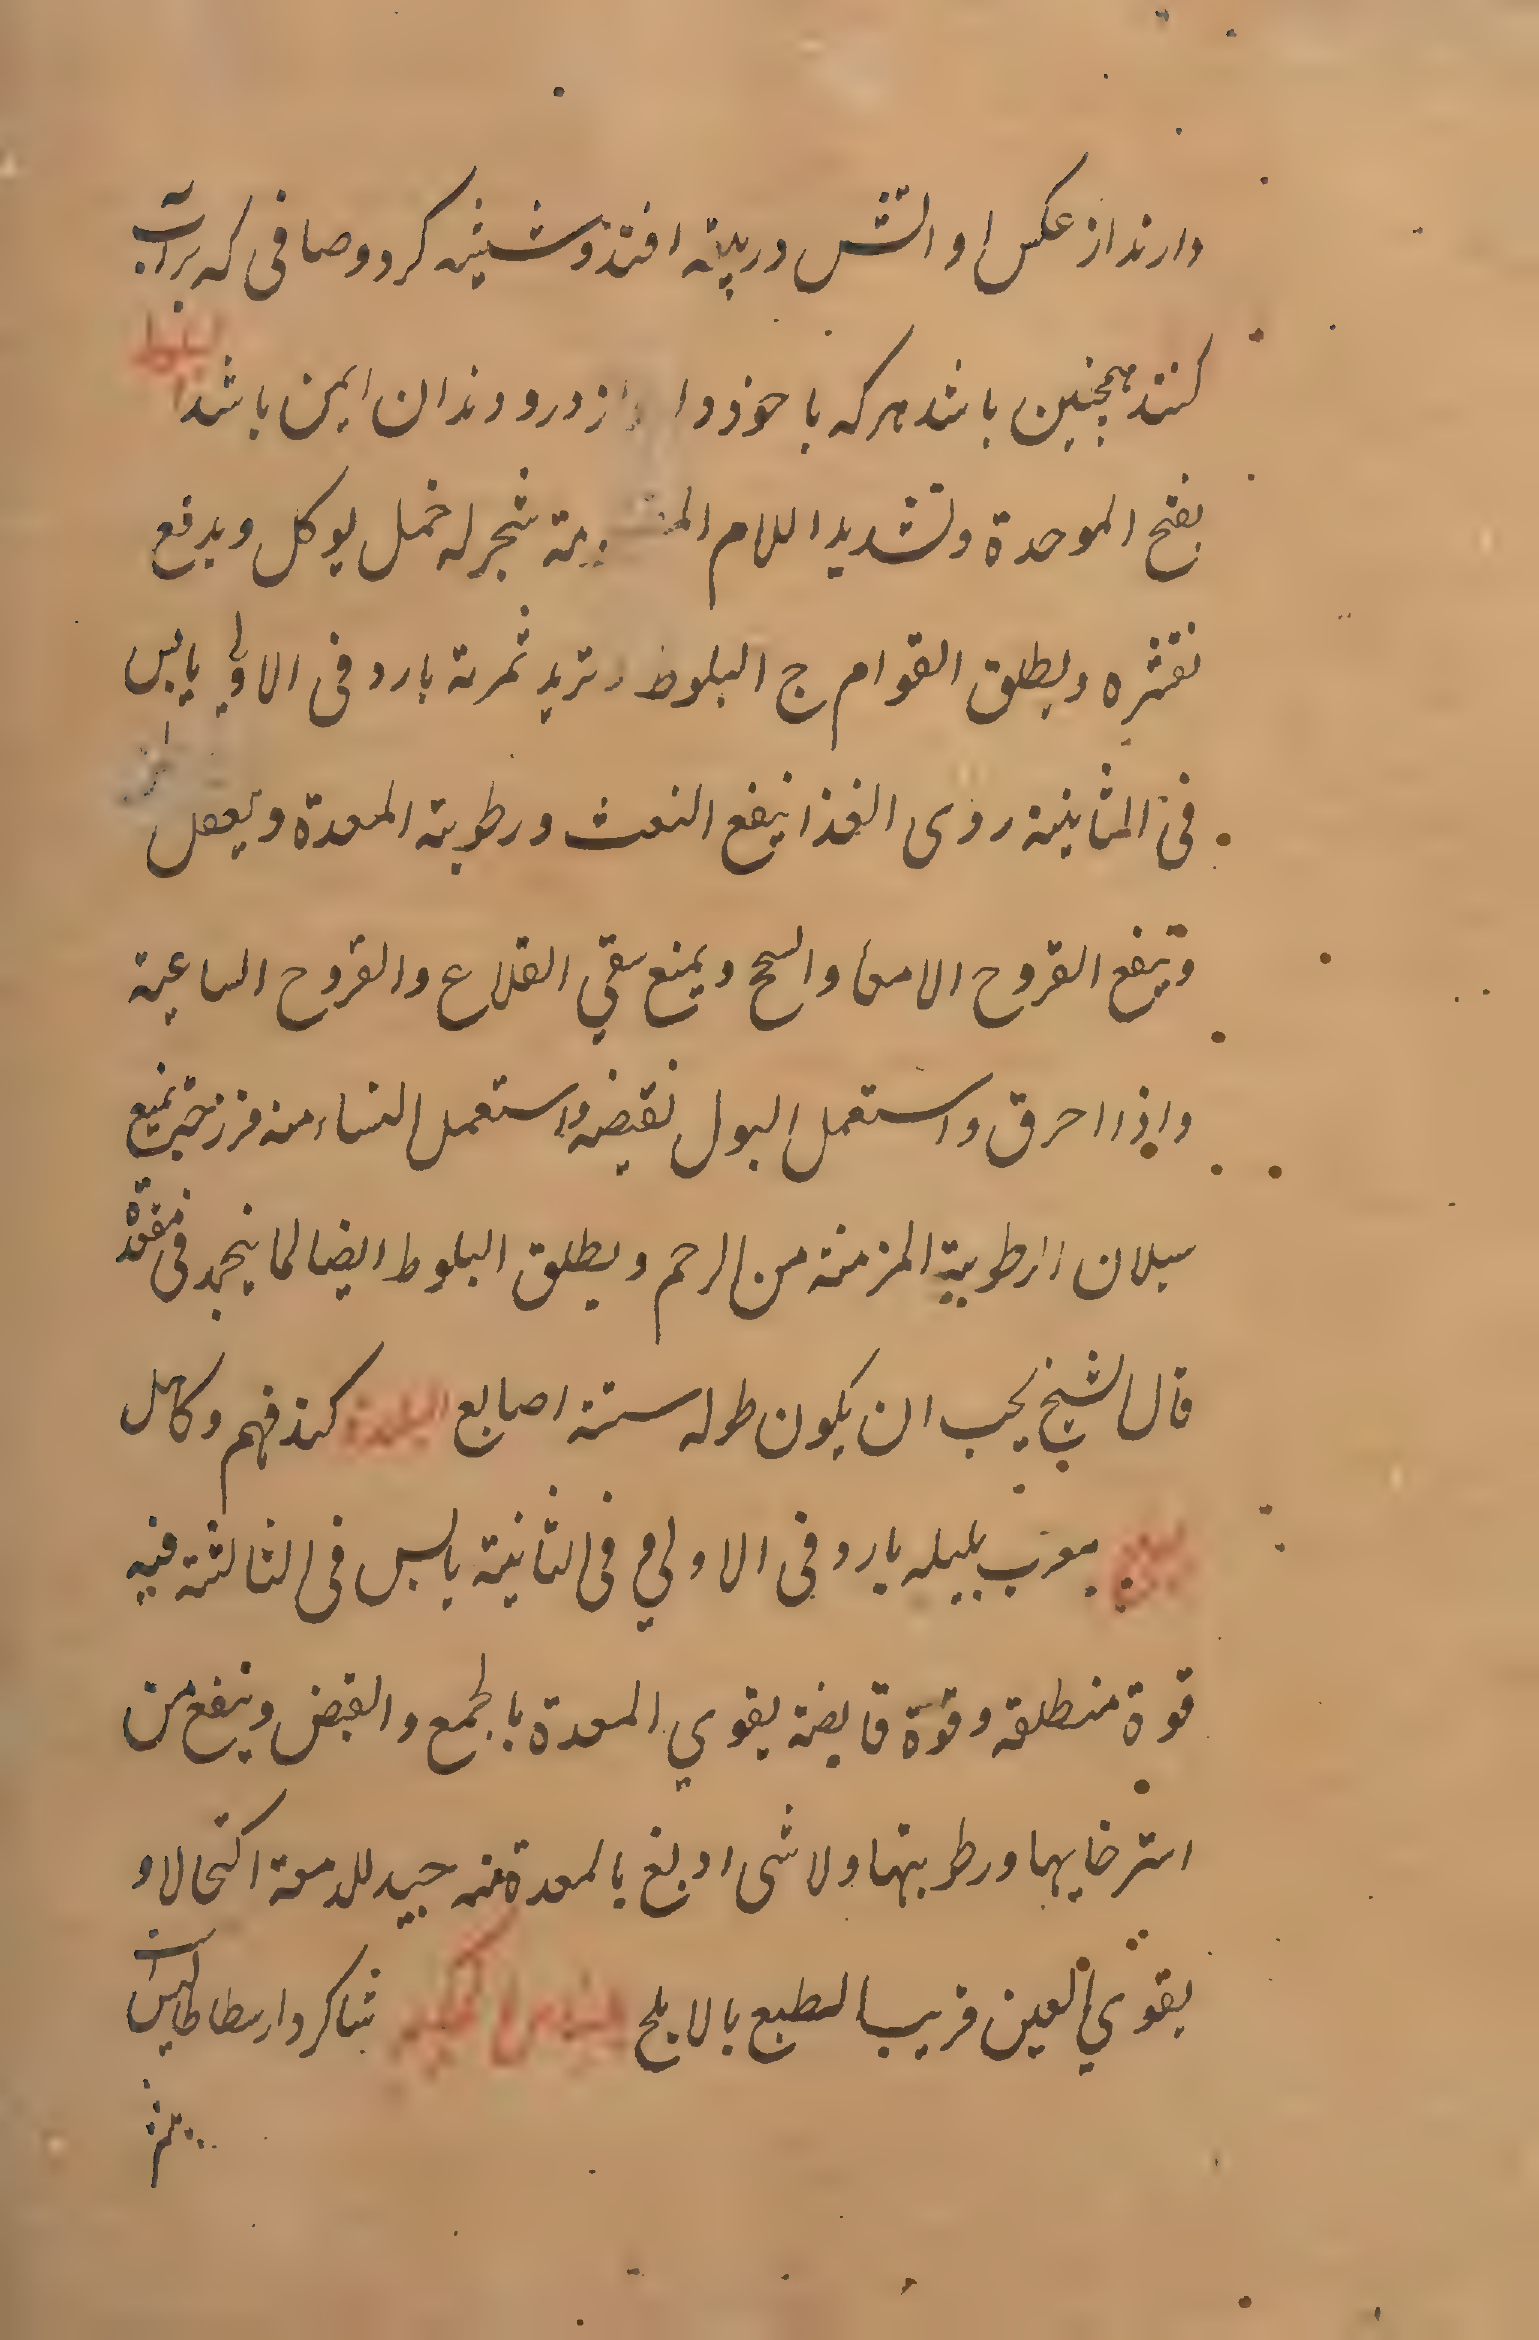 دارند از عکس او اتش در پیته افتد و شیشه کرد و صافی که بر آب
کنند همچنین باشد هرکه با خود دا از درد دندان ایمن باشد البلوط
بفتح الموحدة وتشدید اللام شجر له خمل یوکل ویدفع
بقشره ویطلق القوام ج البلوط ثمرته بارد فی الاولی یابس
فی الثانیة ردی الغذا ینفع النفث ورطوبته المعدة ویعقل
وینفع القروح الامعا والسحج ویمنع سقی القلاع والقروح الساعیة
واذا احرق واستعمل البول نقیضه واستعمل النساء منه فرزجة یمنع
سیلان الرطوبة المزمنة من الرحم ویطلق البلوط ایضا لما ینجمد فی مقعدة
قال الشیخ یجب ان یکون طوله ستة اصابع البلادة کند فهم وکاهل
بلیلج معرب بلیله بارد فی الاولی فی الثانیة یابس فی الثالثة فیه
قوة منطلقه وقوة قابضة یقوی المعدة بالجمع والقبض وینفع من
استرخایها ورطوبتها ولا شی ادبغ بالمعدة منه جید للدمعة اکتحالا و
یقوی العین قریب الطبع بالابلج شاکرد ارسطاطالیس است